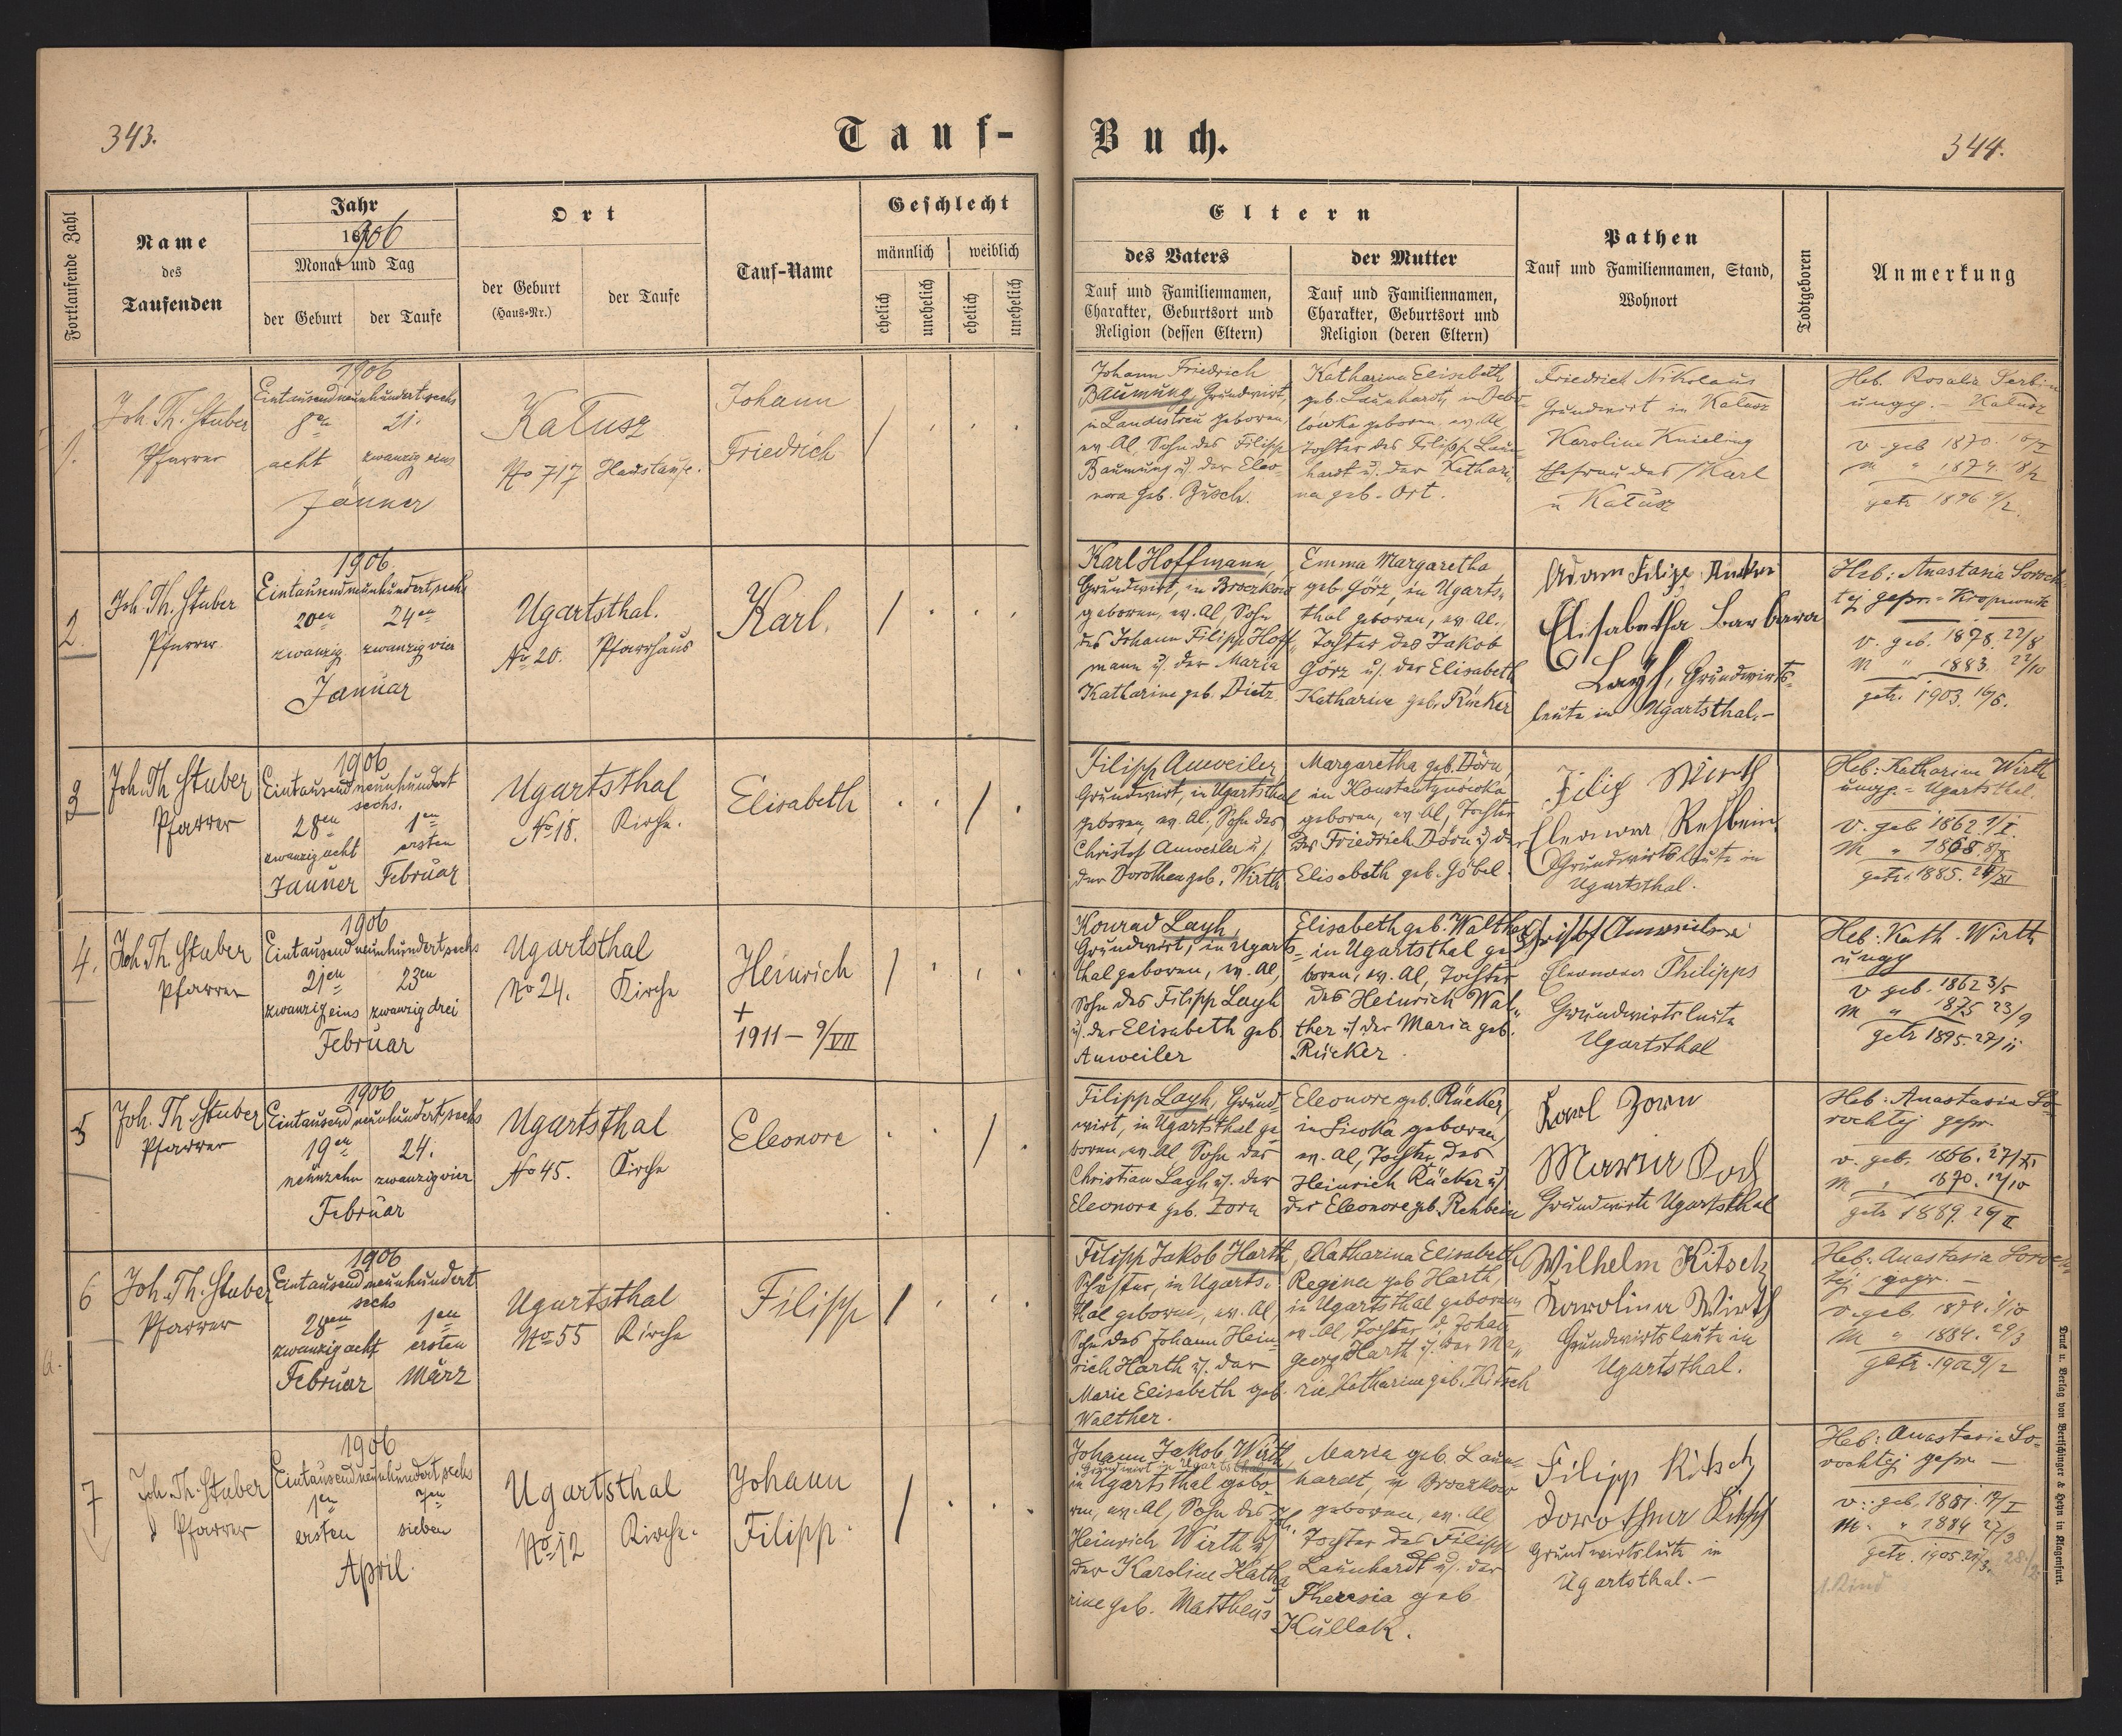 343.
Tauf-
Buch.
344.
Fortlaufende Zahl
Name
des
Taufenden
Jahr
1906
Monat und Tag
der Geburt
der Taufe
Ort
der Geburt
(Haus-Nr.)
der Taufe
Tauf-Name
Geschlecht
männlich
weiblich
ehelich
unehelich
ehelich
unehelich
Eltern
des Vaters
Tauf und Familiennamen,
Charakter, Geburtsort und
Religion (dessen Eltern)
der Mutter
Tauf und Familiennamen,
Charakter, Geburtsort und
Religion (deren Eltern)
Pathen
Tauf und Familiennamen, Stand,
Wohnort
Todtgeboren
Anmerkung
1.
Joh. Th. Stuber
Pfarrer
1906
Eintausendneunhundertsechs
8en
21.
acht
zwanzig eins
Jänner
Kałusz
No 717
Haustaufe.
Johann
Friedrich
Johann Friedrich
Baumung, Grundwirt,
in Landestreu geboren,
ev. Al, Sohn des Filipp
Baumung u. der Eleo-
nora geb. Busch.
Katharina Elisabeth
geb. Launhardt, in Debo-
lówka geboren, ev. Al,
Tochter des Filipp Laun-
hardt u. der Kathari-
na geb. Ort.
Friedrich Nikolaus
Grundwirt in Kałusz
Karoline Knieling
Ehefrau des Karl
in Kałusz
Heb. Rosalia
ungp. - Kałusz
v. geb 1870.
m " 1874.
getr 1896 9/2.
2.
Joh. Th. Stuber
Pfarrer
1906
Eintausendneunhundertsechs
20en
24en
zwanzig
zwanzig vier
Januar
Ugartsthal.
No 20.
Pfarrhaus
Karl.
Karl Hoffmann,
Grundwirt, in Broczkow
geboren, ev. Al, Sohn
des Johann Filipp Hoff-
mann u. der Maria
Katharine geb. Dietz.
Emma Margaretha
geb. Görz, in Ugarts-
thal geboren, ev. Al.,
Tochter des Jakob
Görz u. der Elisabeth
Katharine geb. Rücker
Adam Filipp
Elisabetha Barbara
Layh, Grundwirts-
leute in Ugartsthal.-
Heb: Anastasia Soroch-
tej gepr. -
v. geb. 1878. 22/8
m " 1883. 22/10
getr. 1903. 16/6.
3
Joh. Th Stuber
Pfarrer
1906
Eintausend neunhundert
sechs.
28en
1en
zwanzig acht
ersten
Jänner
Februar
Ugartsthal
No 18.
Kirche.
Elisabeth
Filipp Anweiler
Grundwirt, in Ugartsthal
geboren, ev. Al., Sohn des
Christof Anweiler u.
der Dorothea geb. Wirth
Margaretha geb. Dörn,
in Konstantynówka
geboren, ev. Al, Tochter
des Friedrich Dörn u. der
Elisabeth geb. Göbel.
Filip Wirth
Eleonora Rehbein
Grundwirtsleute in
Ugartsthal.
Heb: Katharina Wirth
ungp. = Ugartsthal.
v. geb 1862
m " 1868
getr. 1885.
4.
Joh. Th. Stuber
Pfarrer
1906
Eintausend neunhundert sechs
21en
23en
zwanzig eins
zwanzig drei
Februar
Ugartsthal
No 24.
Kirche
Heinrich
+
1911 – 9/VII
Konrad Layh,
Grundwirt, in Ugarts-
thal geboren, ev. Al,
Sohn des Filipp Layh
u. der Elisabeth geb.
Anweiler
Elisabeth geb. Walther
in Ugartsthal ge-
boren, ev. Al, Tochter
des Heinrich Wal-
ther u. der Maria geb.
Rücker.
Christof Anweiler
Eleonora Philipps
Grundwirtsleute
Ugartsthal
Heb: Kath. Wirth
ungp
v geb. 1862 3/5
m " 1875 23/9
getr 1895. 27/11
5
Joh. Th. Stuber
Pfarrer
1906
Eintausend neunhundert sechs
19en
24.
neunzehn
zwanzig vier
Februar
Ugartsthal
No 45.
Kirche
Eleonore
Filipp Layh, Grund-
wirt, in Ugartsthal ge-
boren, ev. Al Sohn des
Christian Layh u. der
Eleonora geb. Zorn
Eleonore geb. Rücker,
in Siwka geboren,
ev. Al, Tochter des
Heinrich Rücker u.
der Eleonore geb. Rehbein
Karl Zorn
Maria
Grundwirte Ugartsthal
Heb: Anastasia So-
rochtej gepr.
v. geb. 1866. 27/XI
m " 1870. 12/10
getr 1889.
6
Joh. Th. Stuber
Pfarrer
1906
Eintausend neunhundert
sechs
28en
1en
zwanzig acht
ersten
Februar
März
Ugartsthal
No 55
Kirche
Filipp
Filipp Jakob Harth,
Schuster, in Ugarts-
thal geboren, ev. Al,
Sohn des Johann Hein-
rich Harth u. der
Marie Elisabeth geb.
Walther.
Katharina Elisabeth
Regina geb Harth,
in Ugartsthal geboren
ev. Al, Tochter d. Johann
Georg Harth u. der Ma-
rie Katharine geb. Kitsch
Wilhelm Kitsch
Karolina Wirth
Grundwirtsleute in
Ugartsthal.
Heb: Anastasia Soroch-
tej gepr. -
v. geb. 1874. 1/10
m " 1884. 29/3
getr. 1902 9/2
7
Joh. Th. Stuber
Pfarrer
1906
Eintausend neunhundert sechs
1en
7en
ersten
sieben
April.
Ugartsthal
No 12
Kirche.
Johann
Filipp.
Johann Jakob Wirth,
Grundwirt in Ugartsthal
in Ugartsthal gebo-
ren, ev. Al, Sohn des
Heinrich Wirth u.
der Karoline Katha-
rine geb. Mattheus
Maria geb. Laun-
hardt, in Broczkow
geboren, ev. Al,
Tochter des Filipp
Launhardt u. der
Theresia geb
Kullak.
Filipp Kitsch
Dorothea Kitsch
Grundwirtsleute in
Ugartsthal.-
Heb: Anastasia So-
rochtej gepr -
v. geb. 1881. 17/I
m. " 1884 27/3
getr. 1905.
1. Kind
Druck u. Verlag von Bertschinger & Heyn in Klagenfurt.